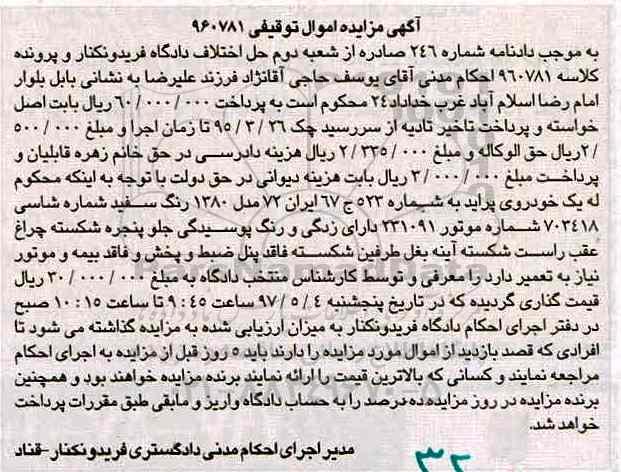 آگهی مزایده اموال توقیفی ۹۶۰۷۸۱
به موجب دادنامه شماره ۲۴۶ صادره از شعبه دوم حل اختلاف دادگاه فریدونکنار و پرونده
کلاسه ۹۶۰۷۸۱ احکام مدنی آقای یوسف حاجی آقانژاد فرزند علیرضا به نشانی بابل بلوار
امام رضا اسلام آباد غرب خداداد۲۴ محکوم است به پرداخت ۶۰/۰۰۰/۰۰۰ ریال بابت اصل
خواسته و پرداخت تاخیر تادیه از سررسید چک ۹۵/۳/۲۶ تا زمان اجرا و مبلغ ۵۰۰/۰۰۰
/۲ریال حق الوکاله و مبلغ ۲/۳۳۵/۰۰۰ ریال هزینه دادرسی در حق خانم زهره قابلیان و
پرداخت مبلغ ۳/۰۰۰/۰۰۰ ریال بابت هزینه دیوانی در حق دولت با توجه به اینکه محکوم
له یک خودروی پراید به شماره ۵۲۳ ج ۶۷ ایران ۷۲ مدل ۱۳۸۰ رنگ سفید شماره شاسی
۷۰۳۴۱۸ شماره موتور ۲۳۱۰۹۱ دارای زدگی و رنگ پوسیدگی جلو پنجره شکسته چراغ
عقب راست شکسته آینه بغل طرفین شکسته فاقد پنل ضبط و پخش و فاقد بیمه و موتور
نیاز به تعمیر دارد را معرفی و توسط کارشناس منتخب دادگاه به مبلغ ۳۰/۰۰۰/۰۰۰ ریال
قیمت گذاری گردیده که در تاریخ پنجشنبه ۹۷/۵/۴ ساعت ۹:۴۵ تا ساعت ۱۰:۱۵ صبح
در دفتر اجرای احکام دادگاه فریدونکنار به میزان ارزیابی شده به مزایده گذاشته می شود تا
افرادی که قصد بازدید از اموال مورد مزایده را دارند باید ۵ روز قبل از مزایده به اجرای احکام
مراجعه نمایند و کسانی که بالاترین قیمت را ارائه نمایند برنده مزایده خواهند بود و همچنین
برنده مزایده در روز مزایده ده درصد را به حساب دادگاه واریز و مابقی طبق مقررات پرداخت
خواهد شد.
مدیر اجرای احکام مدنی دادگستری فریدونکنار-قناد
۳۲